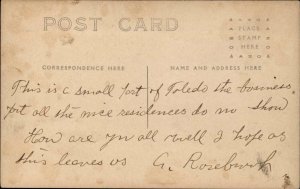 POST CARD
PLACE
STAMP
HERE
CORRESPONDENCE HERE
NAME AND ADDRESS HERE
This is a small part of Toledo the business
prt all the nice residences do no show
How are you all well I hope as
this leaves us G. Rosebush